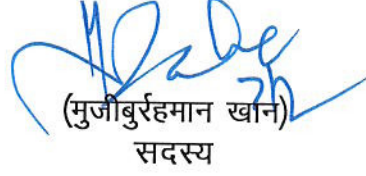 (मुजीबुर्रहमान खान)
सदस्य